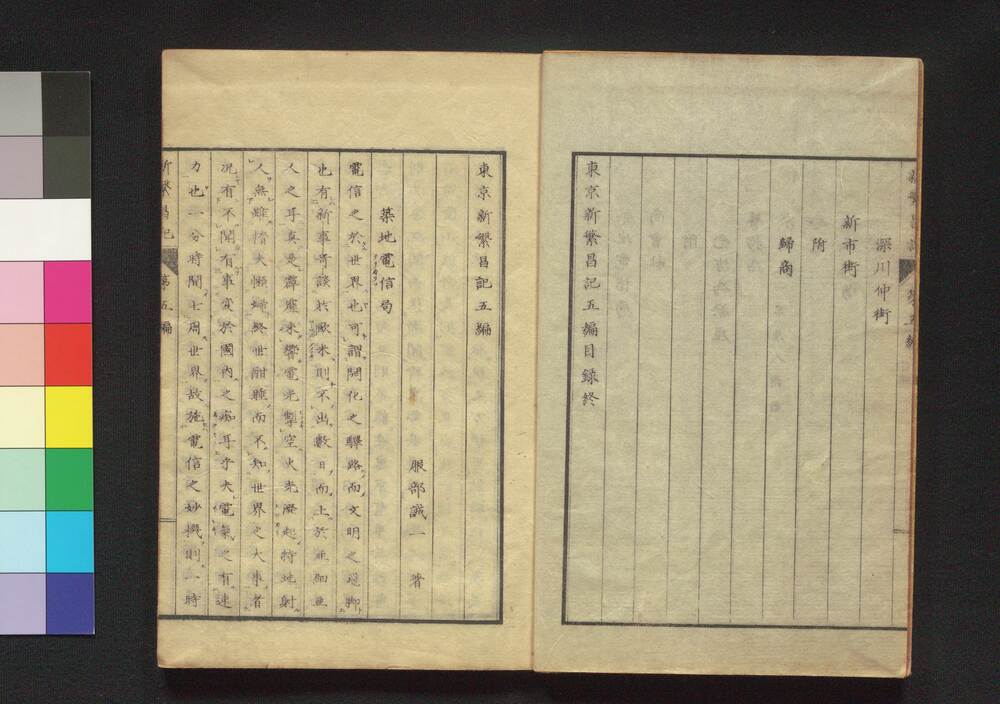 深川仲街
新市街
附
歸商
東京新繁昌記五編目録終
東京新繁昌記五編
服部誠一 著
築地電信局
電信之於世界也可謂開化之驛路而文明之
也有新事奇談於歐米則不出數日而上於亜細亜
人之耳真是霹靂來響電光掣空火光
人無雖惰夫懶婦終世酣睡而不知世界之大事者
況有不聞有事変於國内之痴耳乎夫電氣之有速
力也一分時間七周世界故施電信之妙機則一時
新繁昌記 第五編